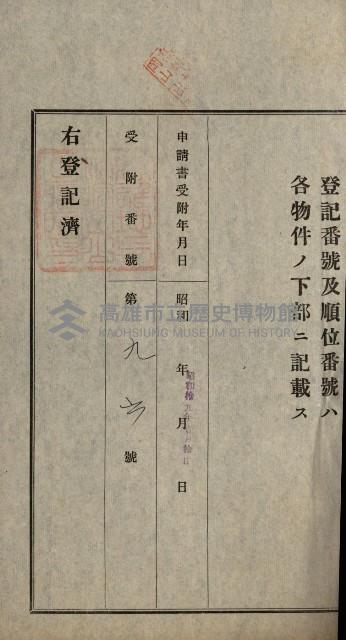 登記番號及順位番號ハ
各物件ノ下部ニ記載ス
申請書受附年月日 昭和 年 月 日
受附番號 第九六號
右登記濟
高雄市立歷史博物館
KAOHSIUNG MUSEUM OF HISTORY